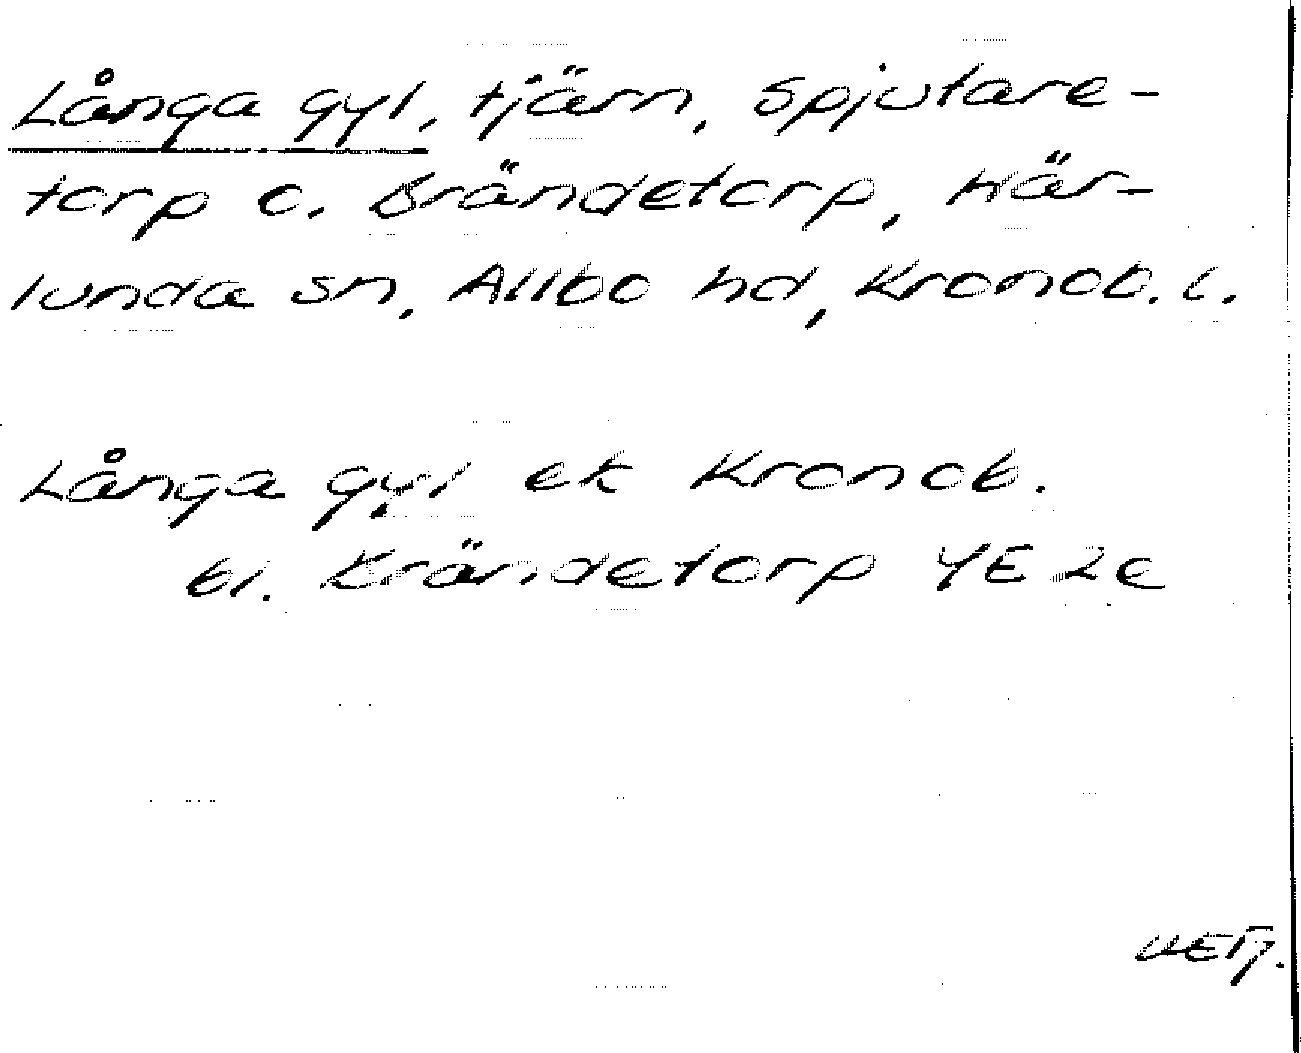 Långa gyl, tjärn, Spjutare-
torp o. Brändetorp, Här-
lunda sn, Allbo hd, Kronob. l.
Långa gyl ek Kronob.
bl. Krändetorp 4E 2c